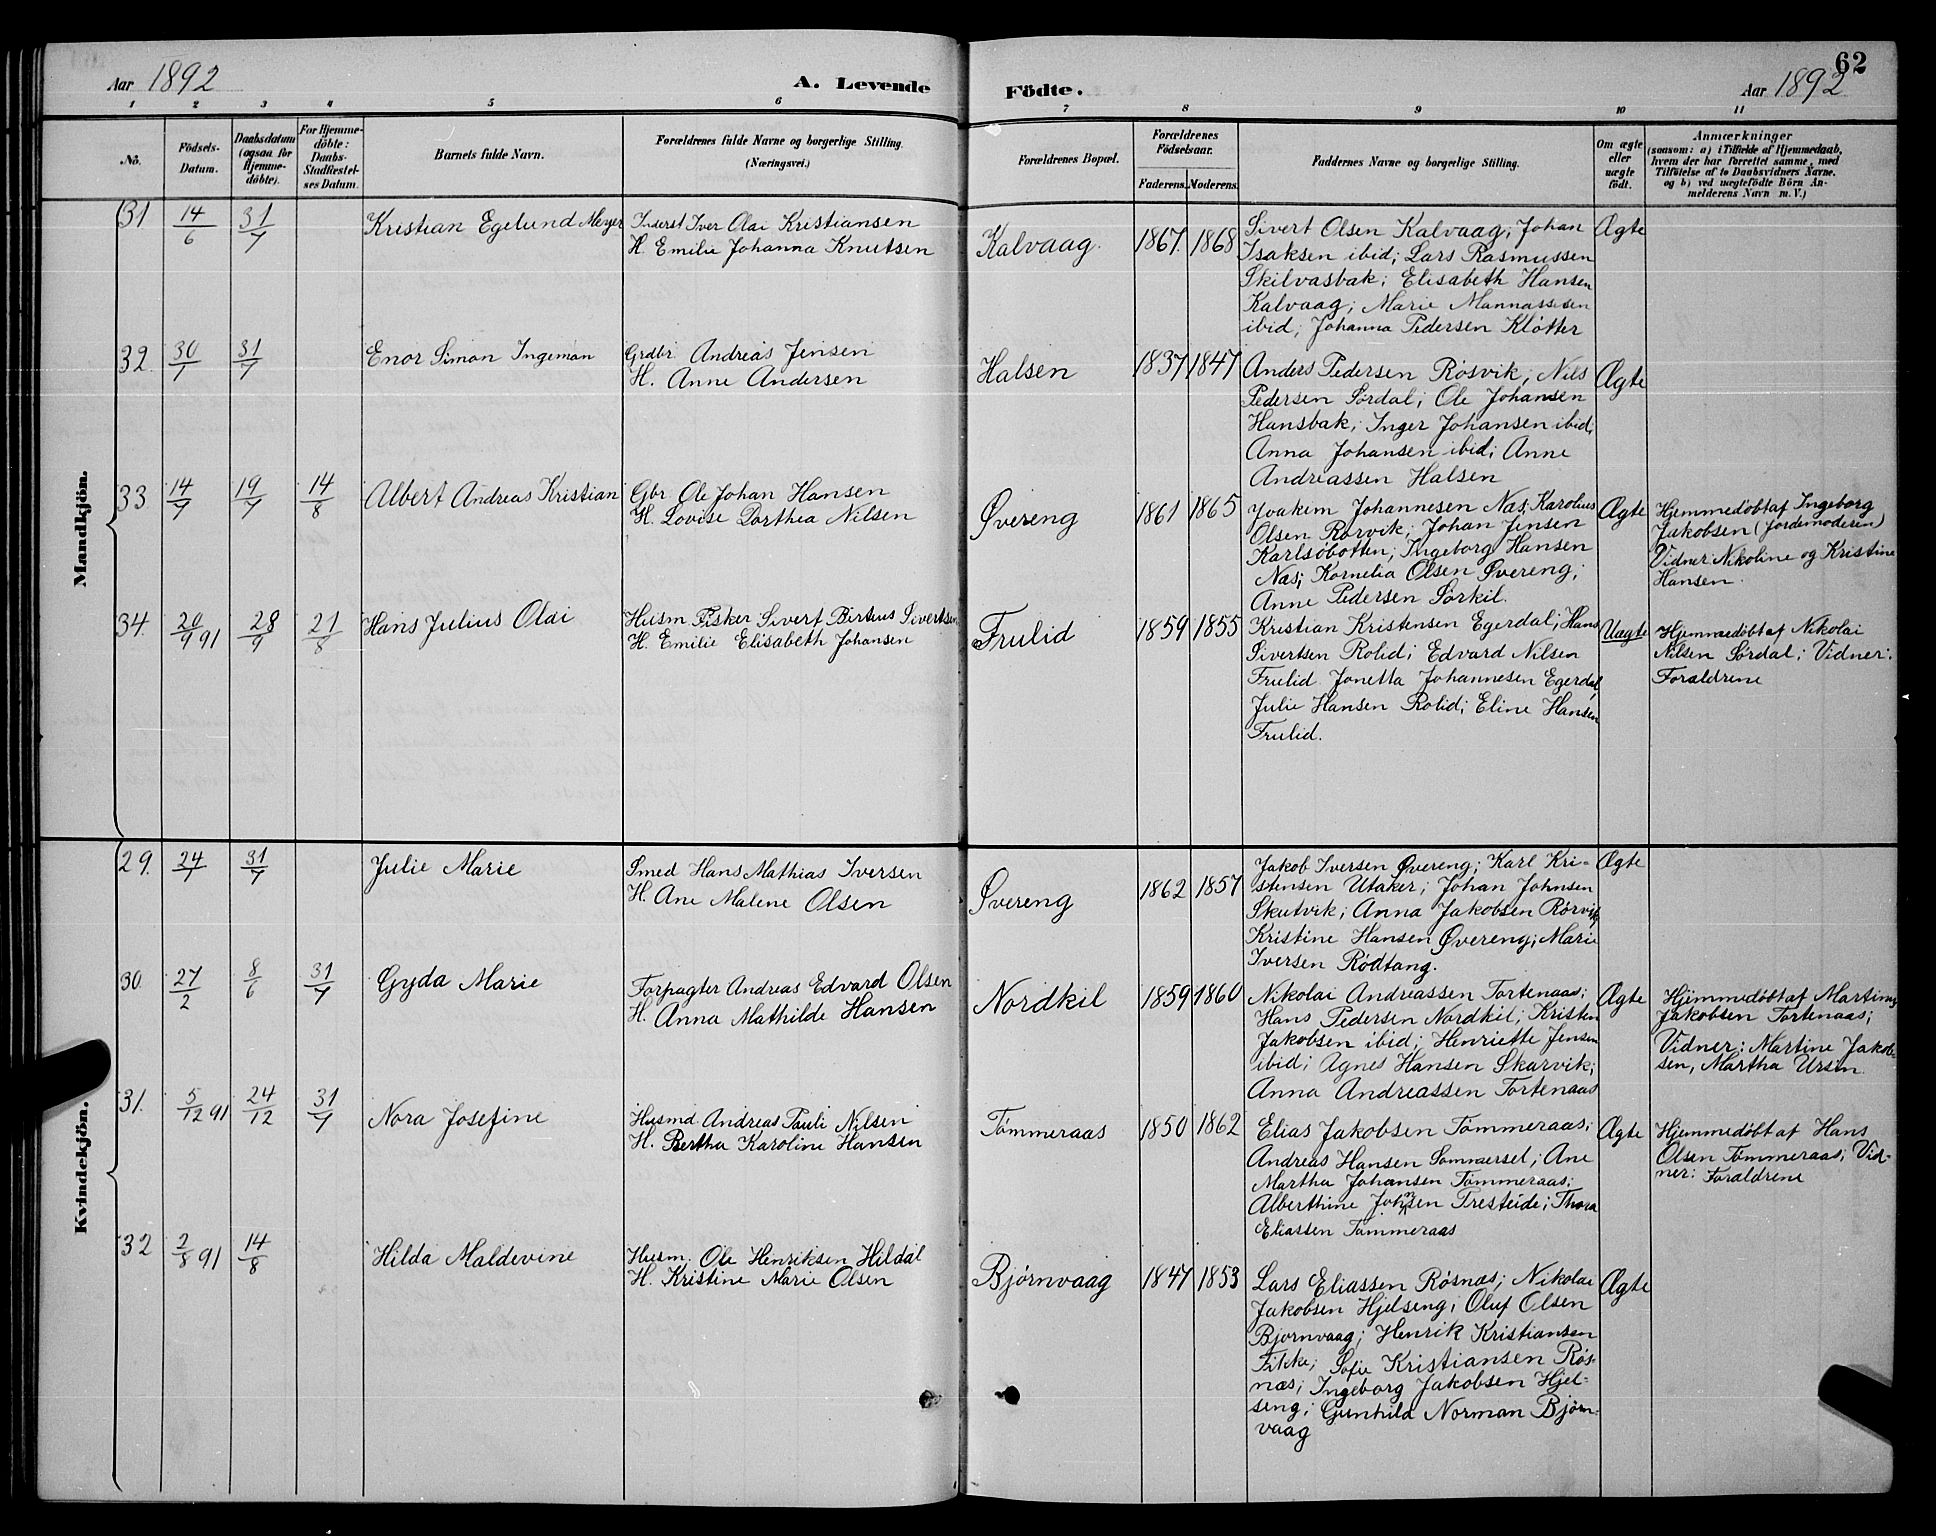 62
Aar 1892
A. Levende
Födte.
Aar 1892
1 2 3 4 5 6 7 8 9 10 11
No.
Födsels-
Datum.
Daabsdatum
(ogsaa for
Hjemme-
döbte).
For Hjemme-
döbte:
Daabs-
Stadfæstel-
ses Datum.
Barnets fulde Navn.
Forældrenes fulde Navne og borgerlige Stilling.
(Næringsvei.)
Forældrenes Bopæl.
Forældrenes
Födselsaar.
Faderens. Moderens.
Faddernes Navne og borgerlige Stilling.
Om ægte
eller
uægte
födt.
Anmærkninger
(saasom: a) i Tilfælde af Hjemmedaab,
hvem der har forrettet samme, med
Tilföielse af to Daabsvidners Navne.
og b) ved uægtefödte Börn An-
melderens Navn m. V.)
Mandkjön.
31 14/6 31/7 Kristian Egelund Meyer
Inderst Iver Olai Kristiansen
H. Emilie Johanna Knutsen
Kalvaag. 1867. 1868
Sivert Olsen Kalvaag; Johan
Isaksen ibid; Lars Rasmussen
Skilvasbak; Elisabeth Hansen
Kalvaag; Marie Mannassesen
ibid; Johanna Pedersen Kløtter
Ægte
32. 30/1 31/7 Enor Simon Ingeman
Grdbr. Andreas Jensen
H. Anne Andersen
Halsen 1837 1847
Anders Pedersen Røsvik; Nils
Pedersen Sørdal; Ole Johansen
Hansbak; Inger Johansen ibid;
Anna Johansen ibid; Anne
Andreassen Halsen
Ægte
33 14/7 19/7 14/8 Albert Andreas Kristian
Gbr Ole Johan Hansen
H. Lovise Dorthea Nilsen
Øvereng 1861 1865
Joakim Johannesen Nas; Karolius
Olsen Rørvik; Johan Jensen
Karlsøbotten; Ingeborg Hansen
Næs; Kornelia Olsen Øvereng;
Anne Pedersen Sørkil.
Ægte
Hjemmedøbt af Ingeborg
Jakobsen (Jordemoderen)
Vidner: Nikoline og Kristine
Hansen.
34. 20/9 91 28/9 21/8 Hans Julius Olai
Husm Fisker Sivert Birtius Sivertsen
H. Emilie Elisabeth Johansen
Frulid 1859 1855
Kristian Kristensen Egerdal; Hans
Sivertsen Rolid; Edvard Nilsen
Frulid Jonetta Johannesen Egerdal
Julie Hansen Rolid; Eline Hansen
Frulid.
Uagte
Hjemmedøbt af Nikolai
Nilsen Sørdal; Vidner:
Foraldrene
Kvindekjön.
29. 24/7 31/7 Julie Marie
Smed Hans Mathias Iversen
H. Ane Malene Olsen
Øvereng 1862 1857
Jakob Iversen Øvereng; Karl Kri-
stensen Utaker; Johan Johnsen
Skutvik; Anna Jakobsen Rørvik
Kristine Hansen Øvereng; Marie
Iversen Rødtang.
Ægte
30. 27/2 8/6 31/7 Gyda Marie
Forpagter Andreas Edvard Olsen
H. Anna Mathilde Hansen
Nordkil 1859 1860
Nikolai Andreassen Tortenaas;
Hans Pedersen Nordkil; Kristen
Jakobsen ibid; Henriette Jensen
ibid; Agnes Hansen Skarvik;
Anna Andreassen Tortenaas
Ægte
Hjemmedøbt af Martinus
Jakobsen Tortenaas;
Vidner: Martine Jakob-
sen, Martha Ursin.
31. 5/12 91 24/12 31/7 Nora Josefine
Husmd Andreas Pauli Nilsen
H. Bertha Karoline Hansen
Tömmeraas 1850 1862
Elias Jakobsen Tömmeraas;
Andreas Hansen Sommersel; Ane
Martha Johansen Tömmeraas;
Alberthine Johnsen Tresteide; Thora
Eliassen Tömmeraas
Ægte
Hjemmedøbt af Hans
Olsen Tömmeraas; Vid-
ner: Foraldrene
32 2/8 91 14/8 Hilda Maldevine
Husm. Ole Henriksen Hildal
H. Kristine Marie Olsen
Bjørnvaag 1847 1853
Lars Eliassen Røsnæs; Nikolai
Jakobsen Hjelseng; Oluf Olsen
Bjornvaag; Henrik Kristiansen
Fikke; Sofie Kristiansen Røs-
næs; Ingeborg Jakobsen Hjel-
seng; Gunhild Norman Bjørn-
vaag
Ægte